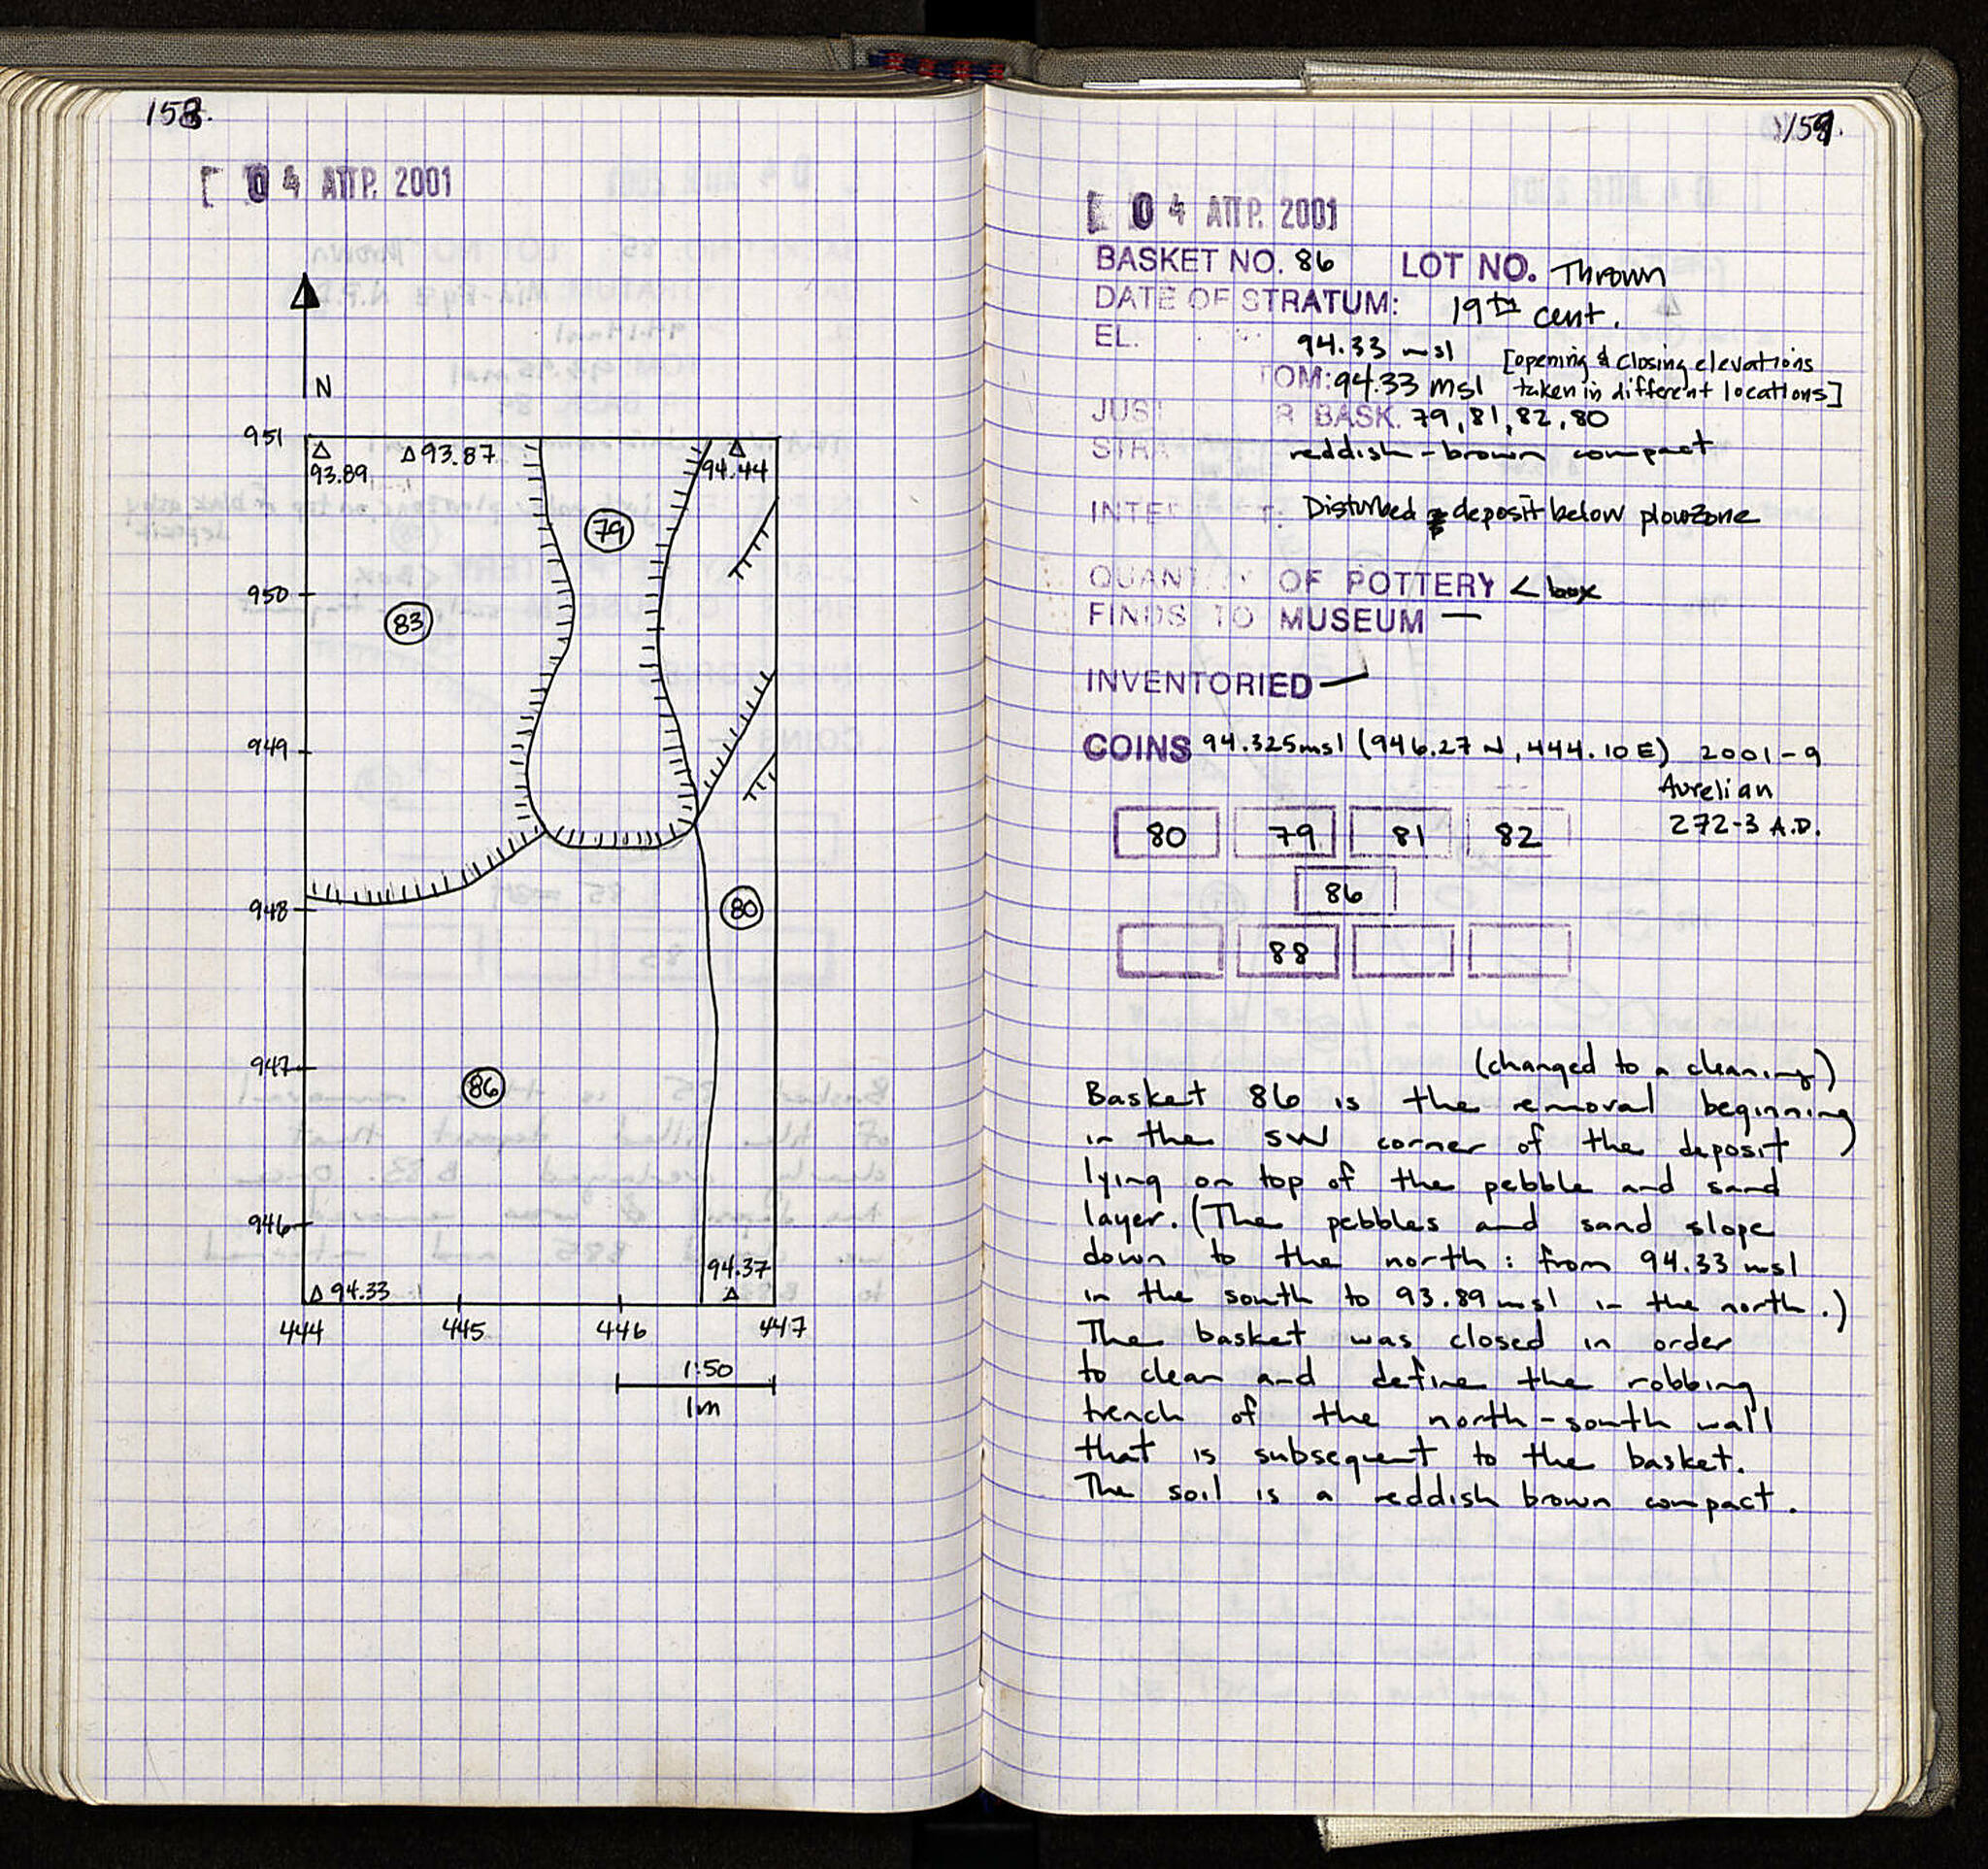 158.
04 ΑΠΡ. 2001
N
951
93.89
93.87
94.44
79
950
83
949
948
80
947
86
946
94.33
94.37
444 445 446 447
1:50
1m
159.
04 ΑΠΡ. 2001
BASKET NO. 86 LOT NO. Thrown
DATE OF STRATUM: 19th cent.
EL. 94.33 msl [opening & closing elevations
TOM: 94.33 msl taken in different locations]
JUS R BASK. 79, 81, 82, 80
STRA reddish-brown compact
INTE T. Disturbed deposit below plowzone
QUANTITY OF POTTERY < box
FINDS TO MUSEUM —
INVENTORIED —
COINS 94.325msl (946.27 N, 444.10 E) 2001-9
Aurelian
272-3 A.D.
80 79 81 82
86
88
(changed to a cleaning)
Basket 86 is the removal beginning
in the SW corner of the deposit
lying on top of the pebble and sand
layer. (The pebbles and sand slope
down to the north: from 94.33 msl
in the south to 93.89 msl in the north.)
The basket was closed in order
to clean and define the robbing
trench of the north-south wall
that is subsequent to the basket.
The soil is a reddish brown compact.